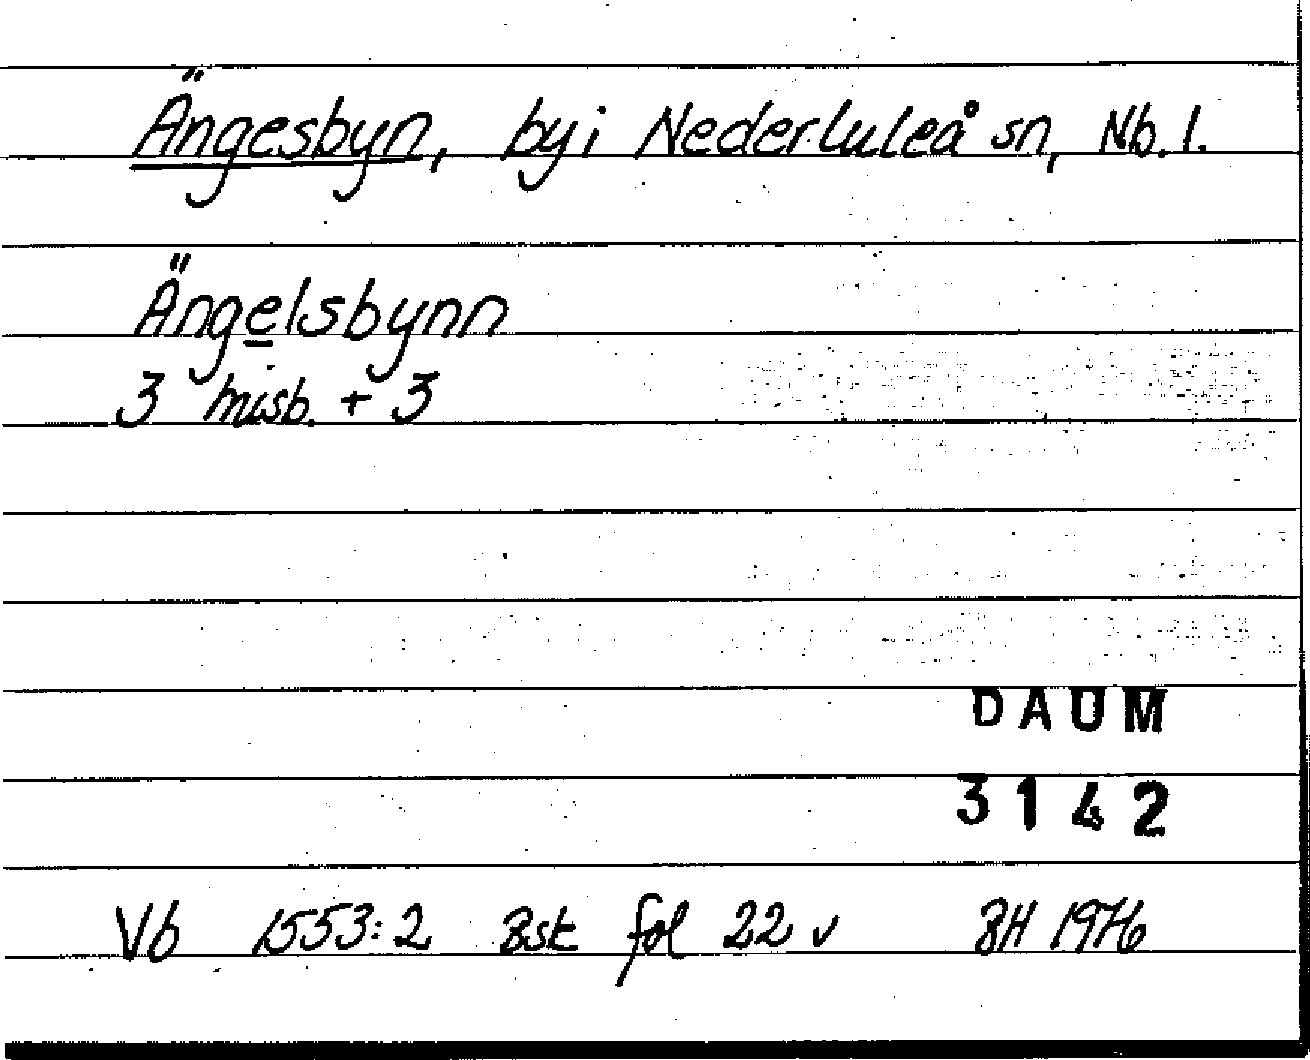 Ängesbyn, by i Nederluleå sn, Nb. l.
Ängelsbynn
3 misb. + 3
DAUM
3142
Vb 1553:2 Bsk fol 22 v BH 1976